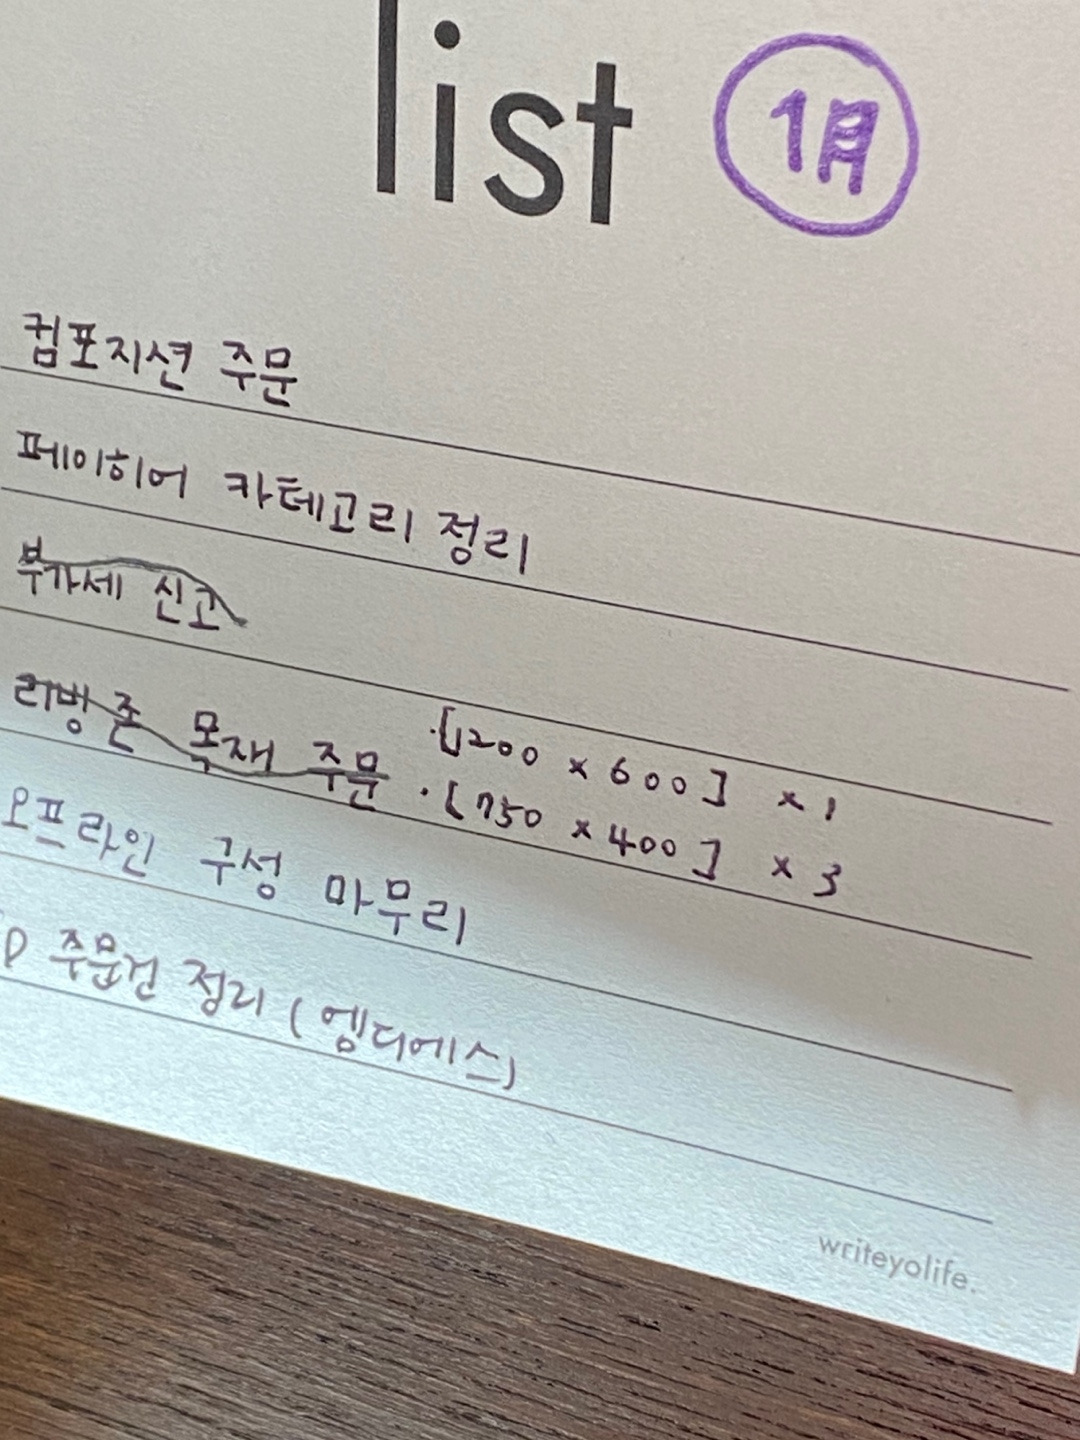 list 1月
컴포지션 주문
페이히어 카테고리 정리
부가세 신고
리빙존 목재 주문 · [1200 x 600] x 1
· [750 x 400] x 3
오프라인 구성 마무리
주문건 정리 (엠디에스)
writeyolife.